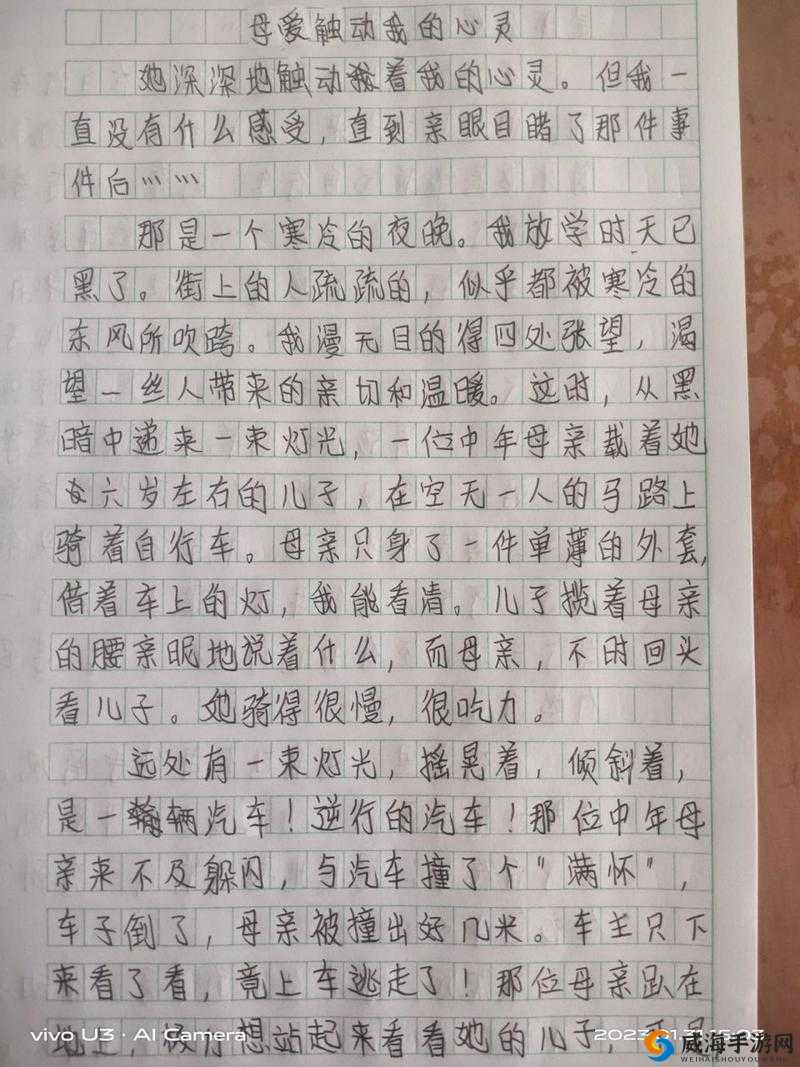 母爱触动我的心灵
她深深地触动着我的心灵。但我一
直没有什么感受，直到亲眼目睹了那件事
件后……
那是一个寒冷的夜晚。我放学时天已
黑了。街上的人疏疏的，似乎都被寒冷的
东风所吹跨。我漫无目的得四处张望，渴
望一丝人带来的亲切和温暖。这时，从黑
暗中递来一束灯光，一位中年母亲载着她
六岁左右的儿子，在空无一人的马路上
骑着自行车。母亲只身了一件单薄的外套，
借着车上的灯，我能看清。儿子揽着母亲
的腰亲昵地说着什么，而母亲，不时回头
看儿子。她骑得很慢，很吃力。
远处有一束灯光，摇晃着，倾斜着，
是一辆汽车！逆行的汽车！那位中年母
亲来不及躲闪，与汽车撞了个"满怀"，
车子倒了，母亲被撞出好几米。车主只下
来看了看，竟上车逃走了！那位母亲趴在
地上，想站起来看看她的儿子，
vivo U3·AI Camera
威海手游网
WEIHAISHOUYOUWANG